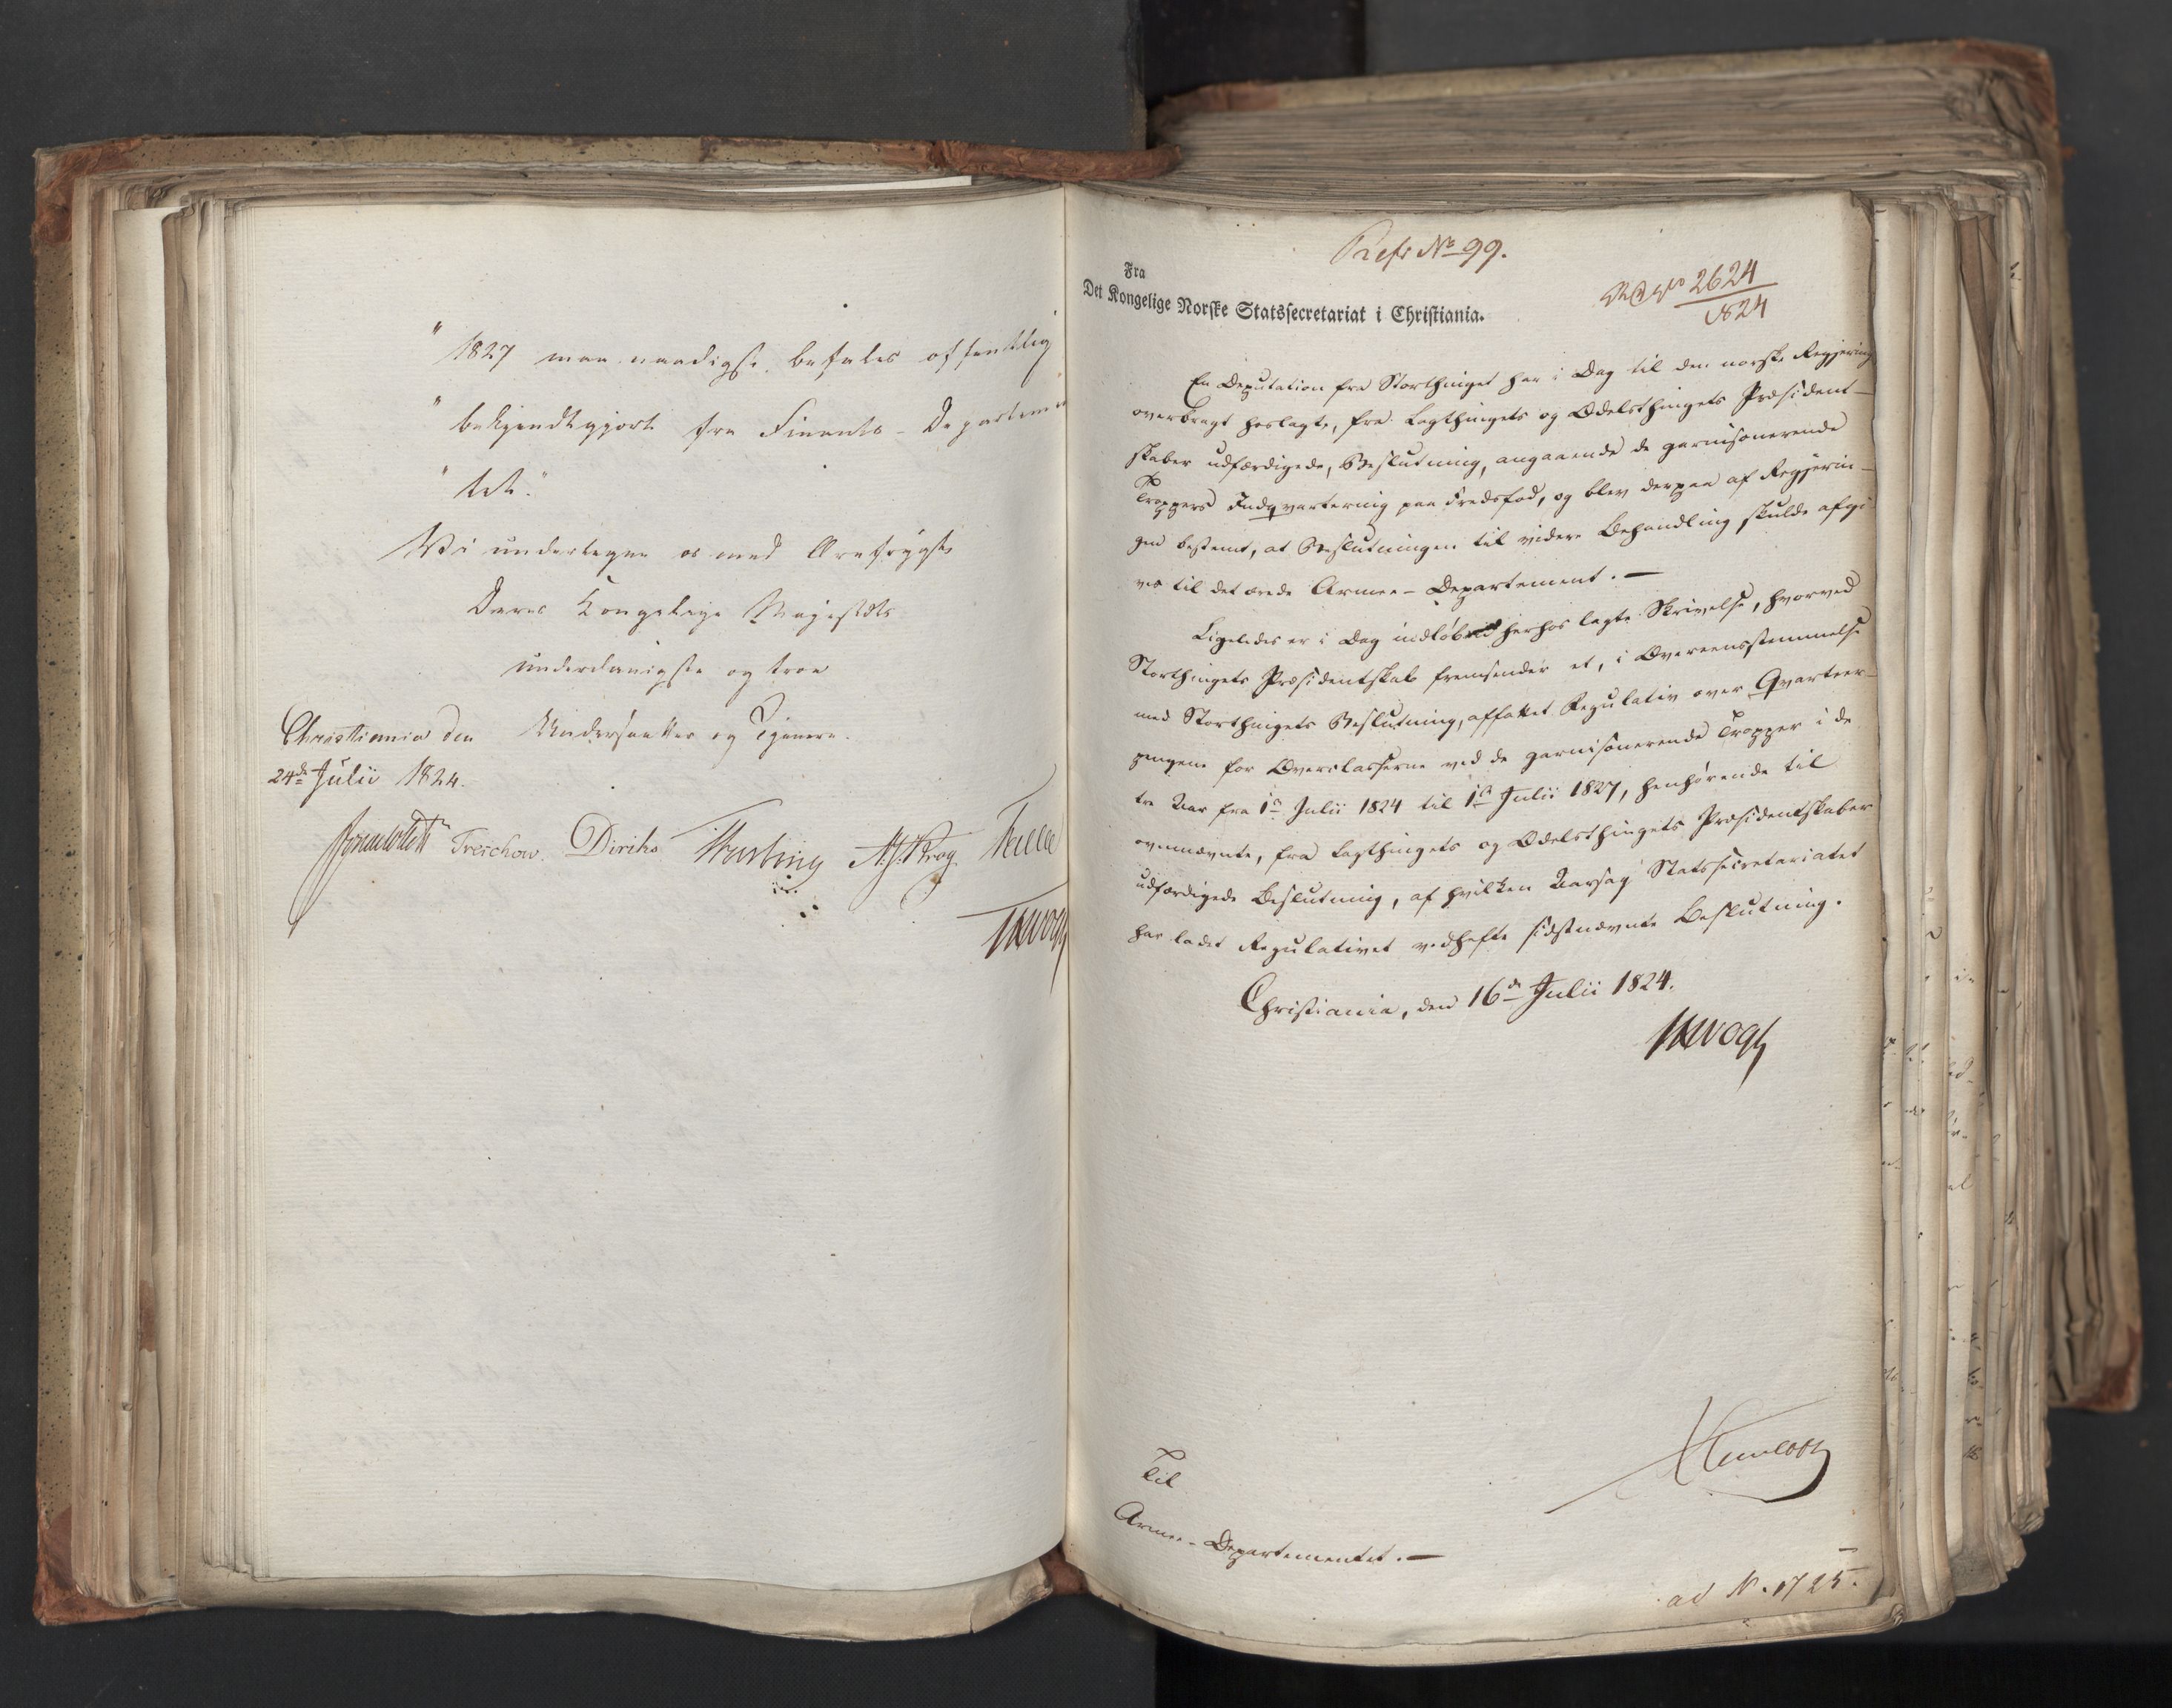 " 1827 maa naadigst befales offentlig
" bekjendtgjort fra Finants-Departemen
" tet."
Vi undertegne os med Ærefrygt
Deres Kongelige Majestæts
underdanigste og troe
Christiania den Undersaatter og Tjenere.
24de Julii 1824.
Treschow. Diriks Krog
Vogt
Refr No 99.
Fra
Det Kongelige Norske Statssecretariat i Christiania.
2624
1824
En Deputation fra Storthinget har i Dag til den norske Regjering
overbragt hoslagte, fra Lagthingets og Odelsthingets Præsident-
skaber udfærdigede, Beslutning, angaaende de garnisonerende
Troppers Indqvartering paa Fredsfod, og blev derpaa af Regjerin-
gen bestemt, at Beslutningen til videre Behandling skulde afgi-
ves til det ærede Armee-Departement. —
Ligeledes er i Dag indløbet herhos lagte Skrivelse, hvorved
Storthingets Præsidentskab fremsender et, i Overeensstemmelse
med Storthingets Beslutning, affattet Regulativ over Qvarteer-
pengene for Overclasserne ved de garnisonerende Tropper i de
tre Aar fra 1ste Julii 1824 til 1ste Julii 1827, henhørende til
ovennævnte, fra Lagthingets og Odelsthingets Præsidentskaber
udfærdigede Beslutning, af hvilken Aarsag Statssecretariatet
har ladet Regulativet vedhefte sidstnævnte Beslutning.
Christiania, den 16de Julii 1824.
Vogt
Til
Armee-Departementet. —
ad N. 1725.